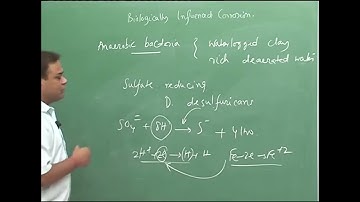 Biologically Influenced Corrosion.
Anaerobic bacteria { Waterlogged clay
rich deaerated water
Sulfate reducing
D. desulfuricans
SO4= + 8H → S= + 4H2O
2H+ + 2e → (H) + H
Fe - 2e → Fe+2